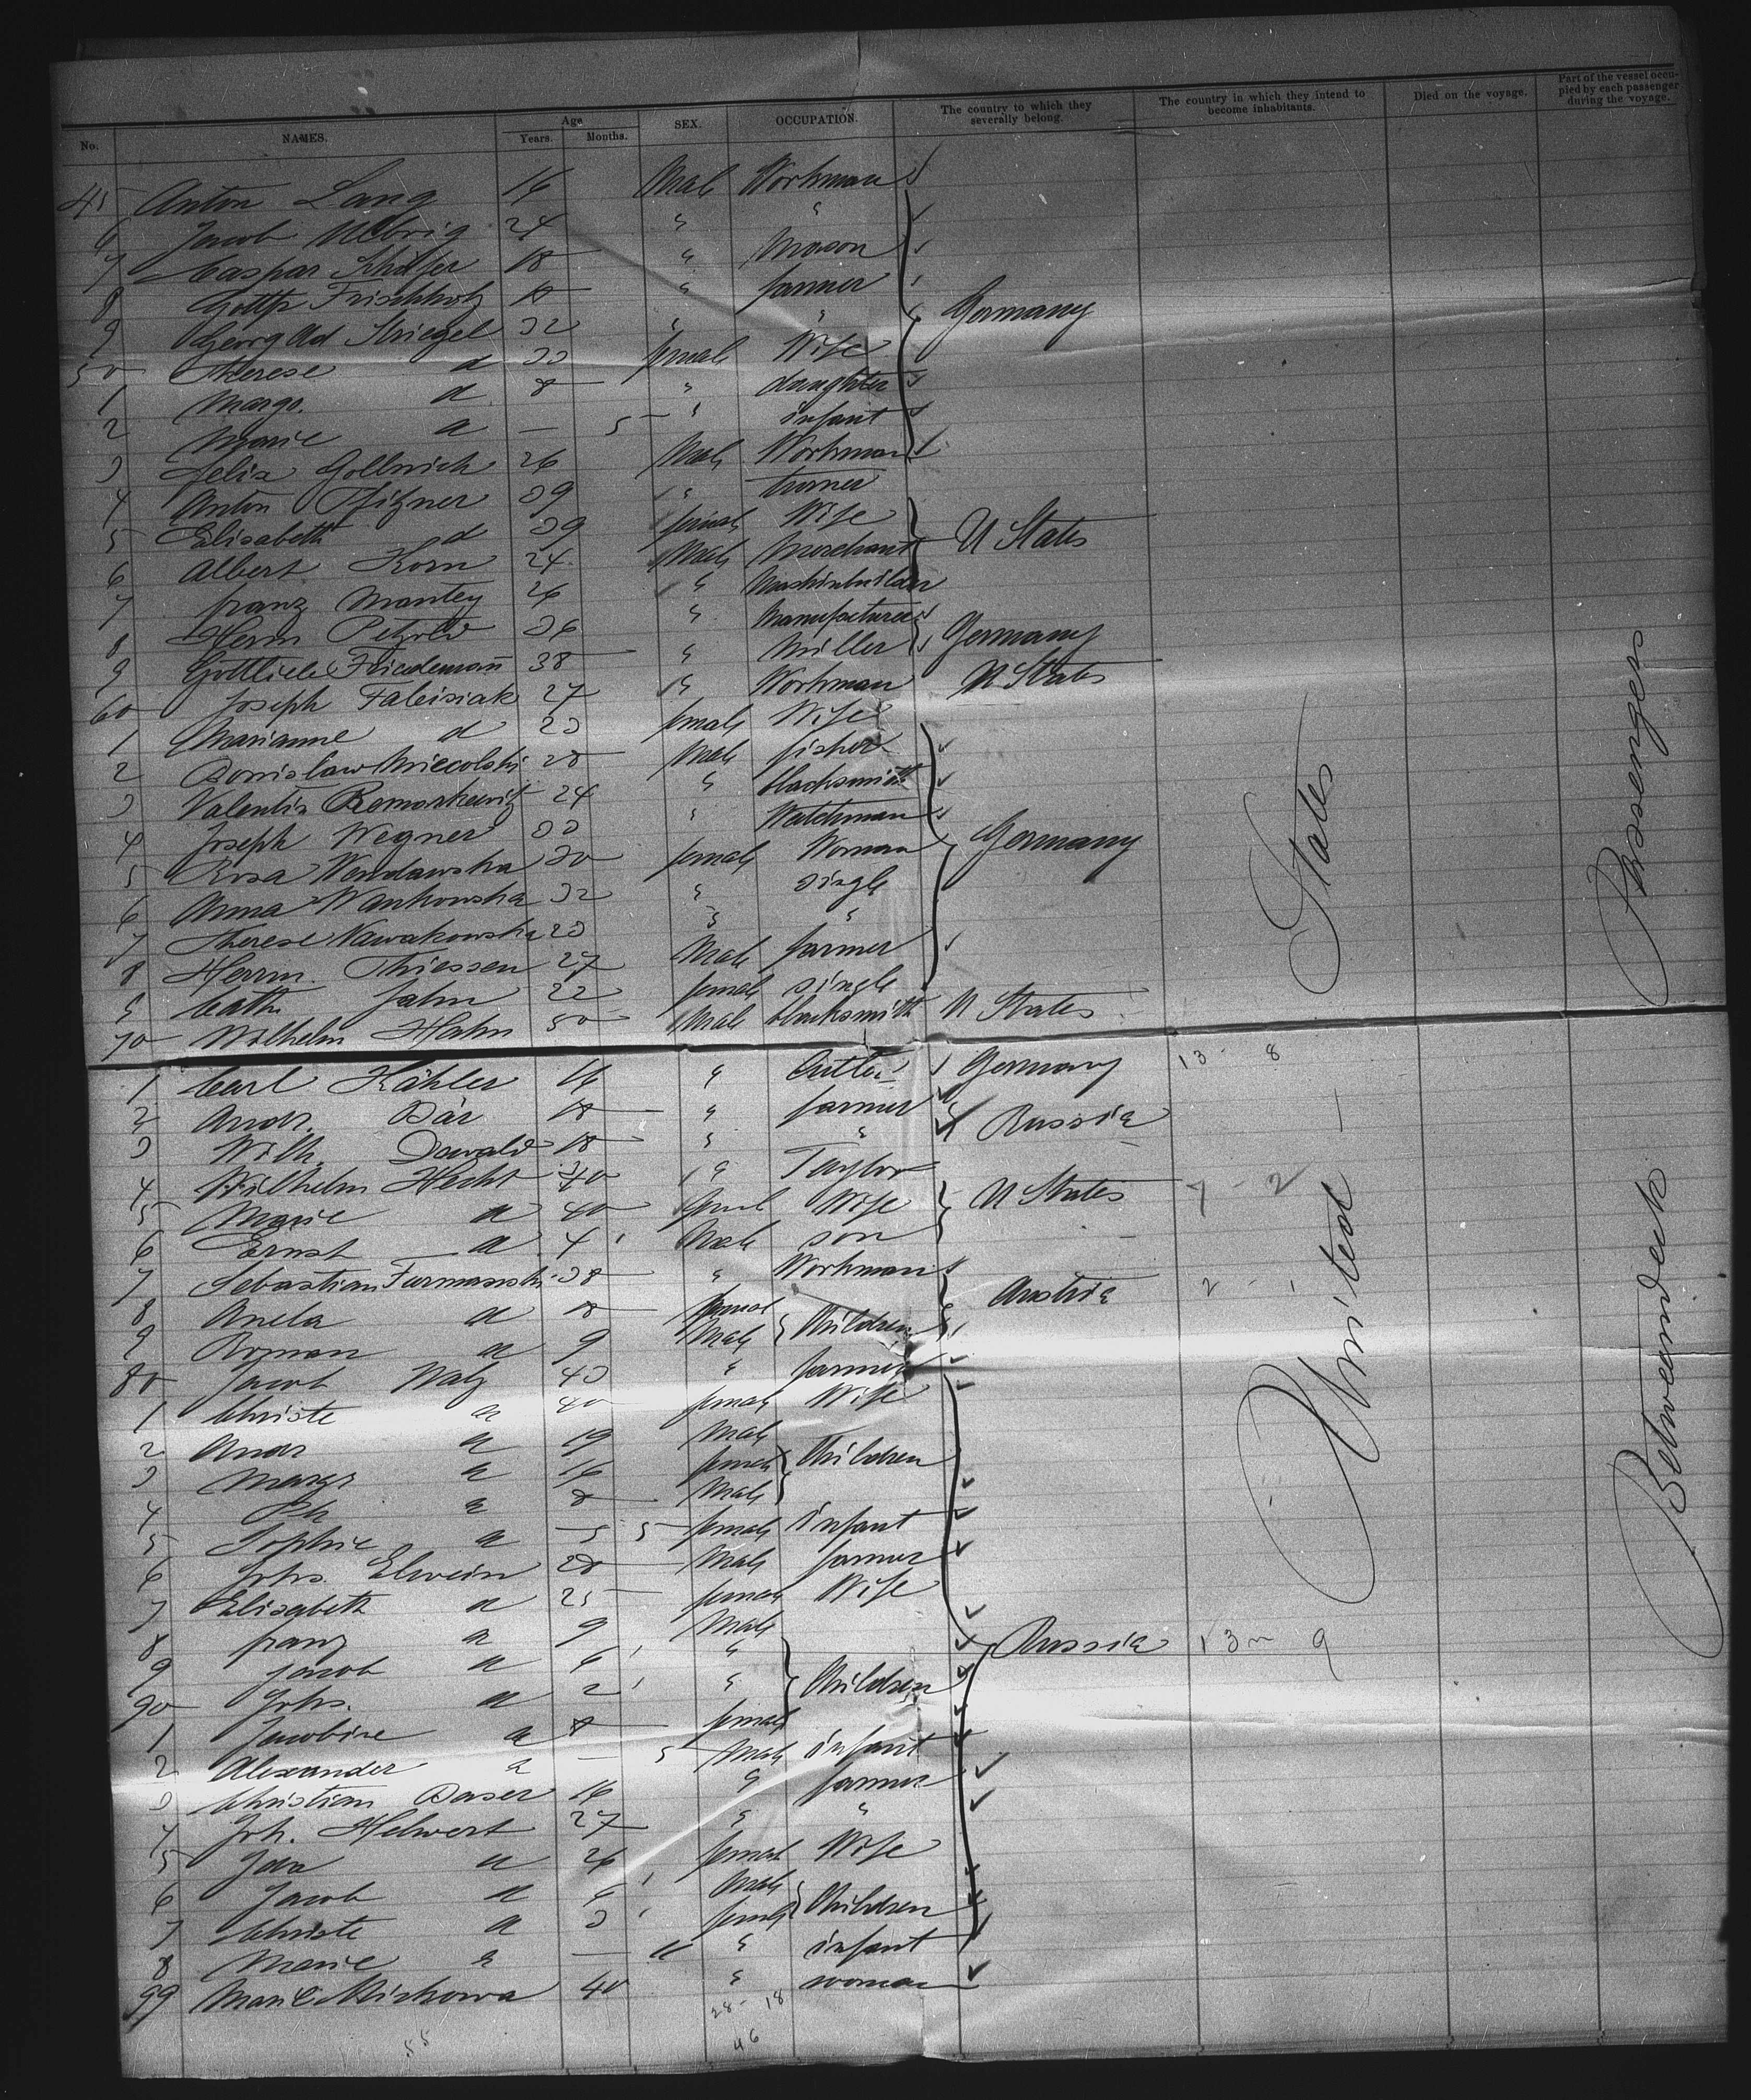 No. NAMES. Age Years. Months. SEX. OCCUPATION. The country to which they severally belong. The country in which they intend to become inhabitants. Died on the voyage. Part of the vessel occupied by each passenger during the voyage.
45 Anton Lang 16 Male Workman
6 Jacob Ulbrig 24 " "
7 Caspar Schäfer 18 " Mason
8 Frischholz 18 " farmer Germany
9 Georg Ad Striegel 32 " "
50 Therese d 33 female Wife
1 Margr. d 8 " daughter
2 Marie a — 5 " infant
3 Felix Gollnick 26 Male Workman
4 Anton Pfitzner 39 " turner
5 Elisabeth d 39 female Wife U States
6 Albert Korn 24 Male Merchant
7 franz Mantey 26 " Mashinbuilder
8 Herm Petzold 36 " Manufacturer Germany
9 Gottlieb Friedemann 38 " Miller
60 Joseph Falcisiak 27 " Workman U States
1 Marianne d 23 female Wife
2 Bronislaw 28 Male fisher
3 Valentin 24 " blacksmith
4 Joseph Wegner 33 " Watchman Germany
5 Rosa Wendawska 30 female Woman
6 Anna Wankowska 32 " single
7 Therese Nawakowska 23 " "
8 Herrm. Thiessen 27 Male farmer
9 Cath. Jahn 22 female single
70 Wilhelm Hahn 50 Male blacksmith U States
1 Carl Kähler 16 " Germany 13 - 8
2 Andr. Bär 18 " farmer Russia
3 Wilh. Oswald 18 " "
4 Wilhelm Hecht 40 " Taylor
5 Marie a 40 femal Wife U States 7 - 2
6 Ernst a 4 Male son
7 Sebastian Furmanski 38 " Workman Austria 2 - 1
8 Aniela a 8 femal Children
9 Roman a 9 Male
80 Jacob Walz 43 " farmer
1 Christe a 40 female Wife
2 Andr a 19 Male Children
3 Margr a 16 female
4 Ph a 8 Male
5 Sophie a — 5 female infant
6 Johs. Elwein 28 Male farmer
7 Elisabeth a 25 female Wife
8 franz a 9 Male Russia 13 - 9
9 Jacob a 6 " Children
90 Johs. a 2 "
1 Jacobine a 8 female
2 Alexander a — 5 Male infant
3 Christian Baser 16 " farmer
4 Joh. Helwert 27 " "
5 Ida a 26 female Wife
6 Jacob a 6 Male Children
7 Christe a 3 female
8 Marie a — 11 " infant
99 40 " woman
28 - 18
55 46
United States
Betweendeck Passengers